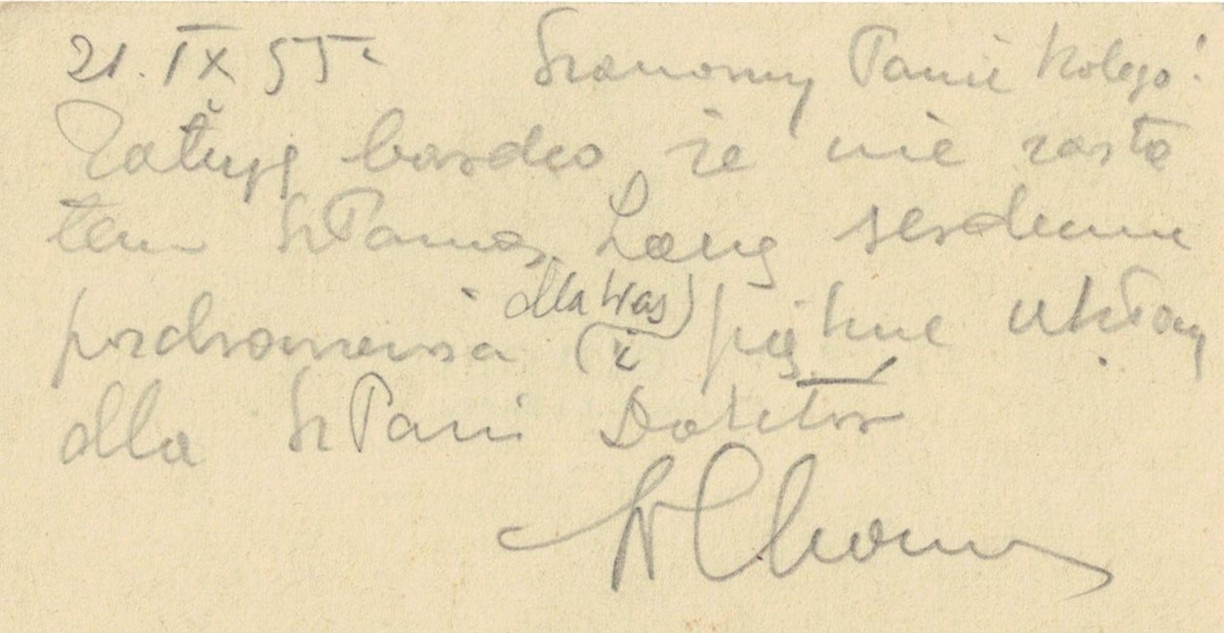 21. IX 55 Szanowny Panie Kolego!
Żałuję bardzo, że nie zasta
łem Sz Pana, Łączę serdeczne
pozdrowienia dla Was i piękne ukłony
dla Sz Pani Doktór